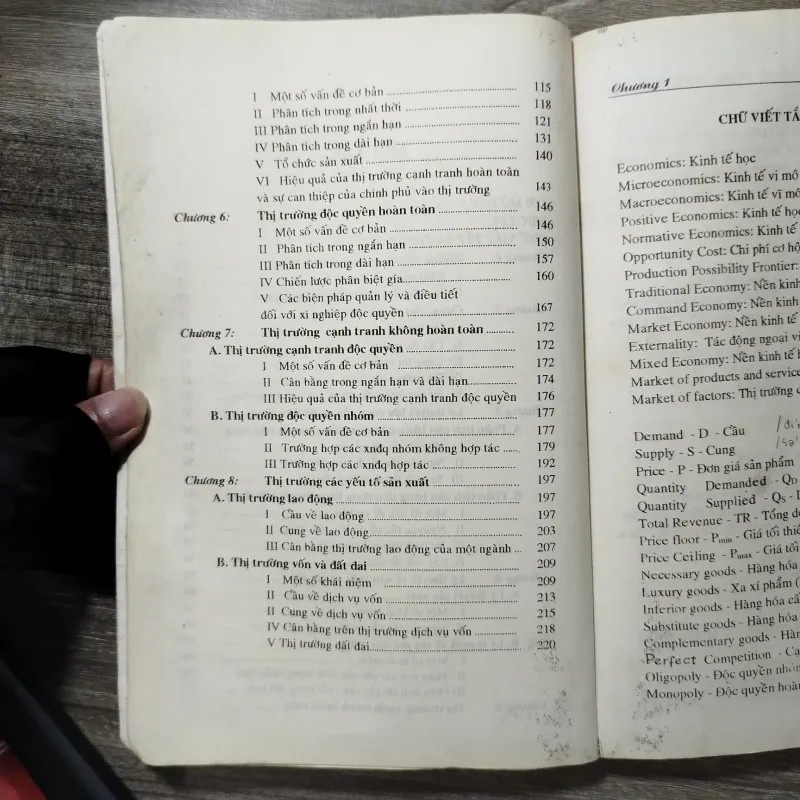 I Một số vấn đề cơ bản ........ 115
II Phân tích trong nhất thời ........ 118
III Phân tích trong ngắn hạn ........ 121
IV Phân tích trong dài hạn ........ 131
V Tổ chức sản xuất ........ 140
VI Hiệu quả của thị trường cạnh tranh hoàn toàn
và sự can thiệp của chính phủ vào thị trường 143
Chương 6: Thị trường độc quyền hoàn toàn ........ 146
I Một số vấn đề cơ bản ........ 146
II Phân tích trong ngắn hạn ........ 150
III Phân tích trong dài hạn ........ 157
IV Chiến lược phân biệt gía ........ 160
V Các biện pháp quản lý và điều tiết
đối với xí nghiệp độc quyền ........ 167
Chương 7: Thị trường cạnh tranh không hoàn toàn ........ 172
A. Thị trường cạnh tranh độc quyền ........ 172
I Một số vấn đề cơ bản ........ 172
II Cân bằng trong ngắn hạn và dài hạn ........ 174
III Hiệu quả của thị trường cạnh tranh độc quyền 176
B. Thị trường độc quyền nhóm ........ 177
I Một số vấn đề cơ bản ........ 177
II Trường hợp các xnđq nhóm không hợp tác ........ 179
III Trường hợp các xnđq hợp tác ........ 192
Chương 8: Thị trường các yếu tố sản xuất ........ 197
A. Thị trường lao động ........ 197
I Cầu về lao động ........ 197
II Cung về lao động ........ 203
III Cân bằng thị trường lao động của một ngành ... 207
B. Thị trường vốn và đất đai ........ 209
I Một số khái niệm ........ 209
II Cầu về dịch vụ vốn ........ 213
II Cung về dịch vụ vốn ........ 215
IV Cân bằng trên thị trường dịch vụ vốn ........ 218
V Thị trường đất đai ........ 220
Chương 1
CHỮ VIẾT TẮ
Economics: Kinh tế học
Microeconomics: Kinh tế vi mô
Macroeconomics: Kinh tế vĩ mô
Positive Economics: Kinh tế học
Normative Economics: Kinh tế
Opportunity Cost: Chi phí cơ hộ
Production Possibility Frontier:
Traditional Economy: Nền kinh
Command Economy: Nền kinh
Market Economy: Nền kinh tế
Externality: Tác động ngoại vi
Mixed Economy: Nền kinh tế
Market of products and service
Market of factors: Thị trường
Demand - D - Cầu
Supply - S - Cung
Price - P - Đơn giá sản phẩm
Quantity Demanded - QD
Quantity Supplied - QS -
Total Revenue - TR - Tổng
Price floor - Pmin - Giá tối thiể
Price Ceiling - Pmax - Giá tối
Necessary goods - Hàng hóa
Luxury goods - Xa xí phẩm (
Inferior goods - Hàng hóa cấ
Substitute goods - Hàng hóa
Complementary goods - Hàn
Perfect Competition - Cạ
Oligopoly - Độc quyền nhóm
Monopoly - Độc quyền hoàn